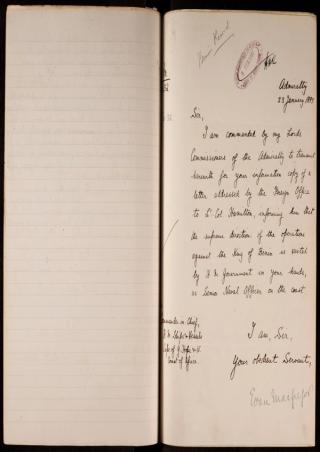 Admiralty
23 January 1897
Sir,
I am commanded by my Lords
Commissioners of the Admiralty to transmit
herewith for your information copy of a
letter addressed by the Foreign Office
to Lt Col. Hamilton, informing him that
the supreme direction of the operations
against the King of Benin is vested
by H. M. Government in your hands,
as Senior Naval Officer on the coast
I am, Sir,
Your obedient Servant,
Evan Macgregor
Commander in Chief,
H. M. Ships & Vessels
Cape of G. Hope & W.
Coast of Africa.